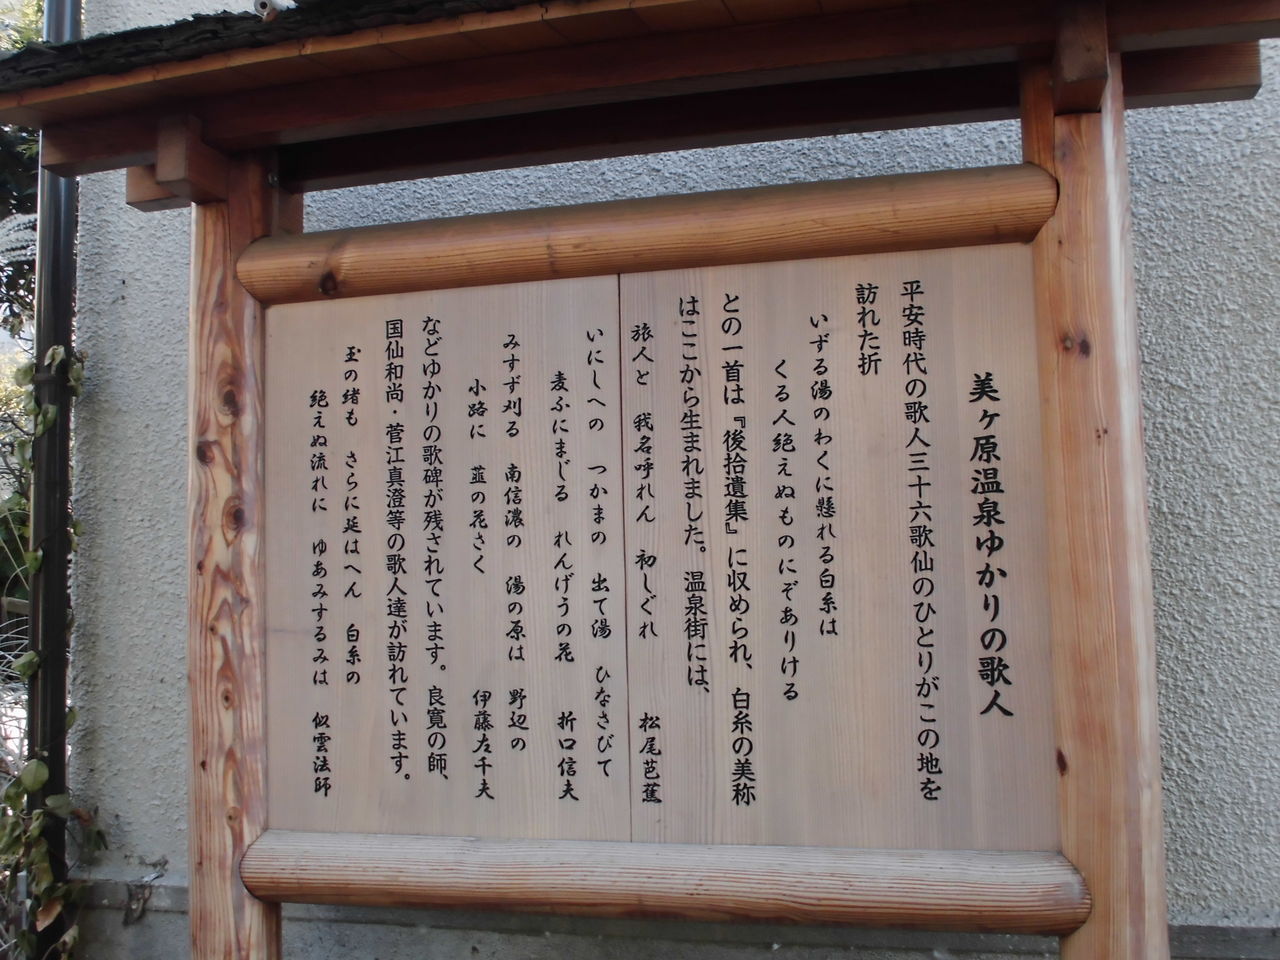 美ヶ原温泉ゆかりの歌人
平安時代の歌人三十六歌仙のひとりがこの地を
訪れた折
いずる湯のわくに懸れる白糸は
くる人絶えぬものにぞありける
との一首は『後拾遺集』に収められ、白糸の美称
はここから生まれました。温泉街には、
旅人と 我名呼れん 初しぐれ 松尾芭蕉
いにしへの つかまの 出て湯 ひなさびて
麦ふにまじる れんげうの花 折口信夫
みすず刈る 南信濃の 湯の原は 野辺の
小路に 韮の花さく 伊藤左千夫
などゆかりの歌碑が残されています。良寛の師、
国仙和尚・菅江真澄等の歌人達が訪れています。
玉の緒も さらに延はへん 白糸の
絶えぬ流れに ゆあみするみは 似雲法師